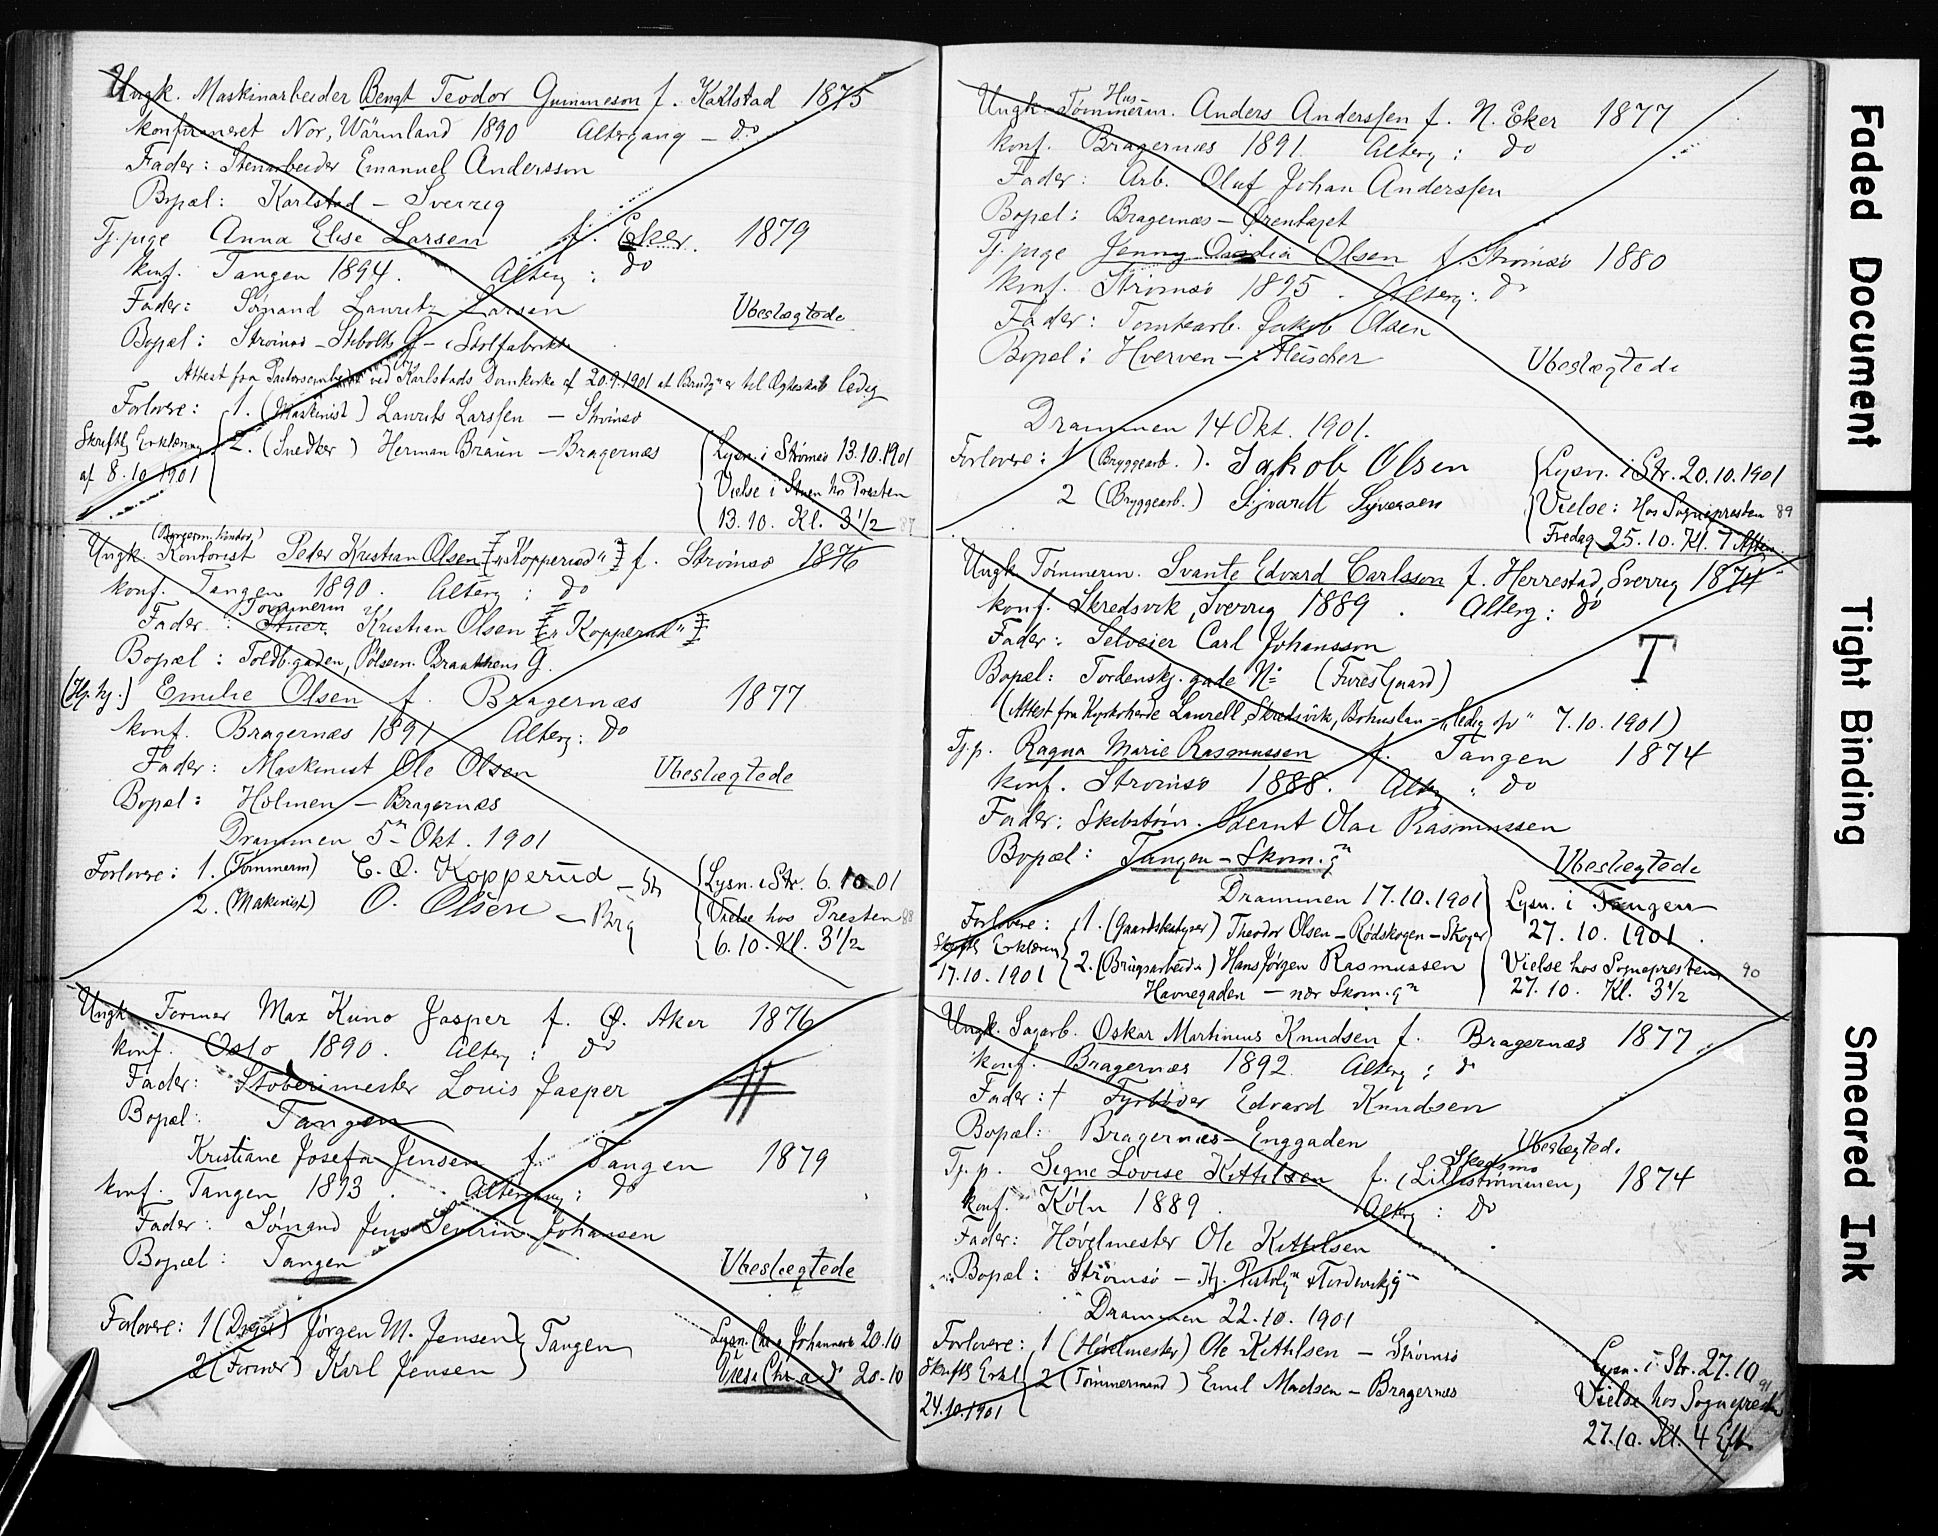 Ungk. Maskinarbeider Bengt Teodor Gummeson f. Karlstad 1875
konfirmeret Nor, Wärmland 1890 Altergang – do
Fader: Stenarbeider Emanuel Andersson
Bopæl: Karlstad – Sverrig
Tj. pige Anna Elise Larsen f. Eker 1879
konf. Tangen 1894. Alterg: do
Fader: Sømand Lauritz Larsen
Ubeslægtede
Bopæl: Strømsø – Stibolts G – Stolfabrik
Attest fra Pastorsembedet ved Karlstads Domkirke af 20.9.1901 at Brudg. er til Ægteskab ledig
Forlovere: 1. (Maskinist) Laurits Larssen – Strømsø
Skriftlig Erklæring af 8.10.1901
2. (Snedker) Herman Braun – Bragernæs
Lysn. i Strømsø 13.10.1901
Vielse i Stuen hos Presten
13.10. Kl. 3 1/2 87
Ungk. Kontorist Peder Kristian Olsen ("Kopperud") f. Strømsø 1876
konf. Tangen 1890. Alterg: do
Tømmerm
Fader: Stuer. Kristian Olsen ("Kopperud")
Bopæl: Toldb.gaden, Pølsem. Braathens G.
(Hj. hj.) Emilie Olsen f. Bragernæs 1877
konf. Bragernæs 1891 Alterg: do
Fader: Maskinist Ole Olsen
Ubeslægtede
Bopæl: Holmen – Bragernæs
Drammen 5te Okt. 1901
Forlovere: 1. (Tømmerm) C. O. Kopperud – Str
2. (Maskinist) O. Olsen – Brg
Lysn. i Str. 6.10.01
Vielse hos Presten 88
6.10. Kl. 3 1/2
Ungk. Former Max Kuno Jasper f. Ø. Aker 1876
konf. Oslo 1890. Alterg: do
Fader: Støberimester Louis Jasper
Bopæl: Tangen
Kristiane Josefa Jensen f. Tangen 1879
konf. Tangen 1893. Altergang: do
Fader: Sømand Jens Severin Johansen
Bopæl: Tangen
Ubeslægtede
Forlovere: 1 (Dreier) Jørgen M. Jensen
2 (Former) Karl Jensen
Tangen
Lysn. Chra Johannes 20.10
Vielse Chra do 20.10
Hus
Ungk. Tømmerm. Anders Anderssen f. N. Eker 1877
konf. Bragernæs 1891. Alterg: do
Fader: Arb. Oluf Johan Anderssen
Bopæl: Bragernæs – Ørentaget
Tj. pige Jenny Olsen f. Strømsø 1880
konf. Strømsø 1895. Alterg: do
Fader: Tomtearb. Jakob Olsen
Bopæl: Hverven – Fleischer
Ubeslægtede
Drammen 14 Okt. 1901.
Forlovere: 1 (Bryggearb.). Jakob Olsen
2 (Bryggearb.) Sijvardt Syversen
Lysn. i Str. 20.10.1901
Vielse: Hos Sognepresten 89
Fredag 25.10. Kl. 7 Aften
Ungk. Tømmerm. Svante Edvard Carlsson f. Herrestad, Sverrig 1874
konf. Skredsvik, Sverrig 1889. Alterg: do
Fader: Selveier Carl Johansson
T
Bopæl: Tordenskj. gade No (Fures Gaard)
(Attest fra Kyrkoherde Laurell, Skredsvik, Bohuslan – "ledig" 7.10.1901)
Tj.p. Ragna Marie Rasmussen f. Tangen 1874
konf. Strømsø 1888. Alterg: do
Fader: Skibstøm. Bernt Olai Rasmussen
Bopæl: Tangen – Skom.gn
Ubeslægtede
Drammen 17.10.1901
Forlovere: 1. (Gaardsbestyrer) Theodor Olsen – Rødskogen – Skoger
Skriftl Erklæring 17.10.1901
2. (Brugsarbeider) Hans Jørgen Rasmussen
Havnegaden – nær Skom.gn
Lysn. i Tangen
27.10.1901.
Vielse hos Sognepresten 90
27.10. Kl. 3 1/2
Ungk. Sagarb. Oskar Martinius Knudsen f. Bragernæs 1877
konf. Bragernæs 1892. Alterg: do
Fader: † Fyrbøder Edvard Knudsen
Bopæl: Bragernæs – Enggaden
Ubeslægtede
Skedsmo
Tj. p. Signe Lovise Kittilsen f. (Lillestrømmen) 1874
konf. Köln 1889. Alterg: do
Fader: Høvelmester Ole Kittilsen
Bopæl: Strømsø – Hj. Pistolgn & Tordenskjgn
Drammen 22.10.1901
Forlovere: 1 (Høvelmester) Ole Kittilsen – Strømsø
Skriftl Erkl 24.10.1901
2 (Tømmermand) Emil Madsen – Bragernæs
Lysn. i Str. 27.10
91
Vielse hos Sognepresten
27.10. Kl. 4 Eft.
Faded Document
Tight Binding
Smeared Ink